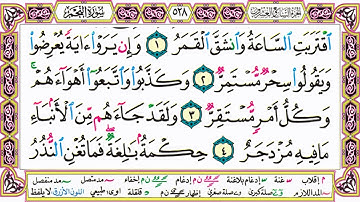 سورة القمر
٥٢٨
الجزء السابع والعشرون
ٱقْتَرَبَتِ ٱلسَّاعَةُ وَٱنشَقَّ ٱلْقَمَرُ ١ وَإِن يَرَوْا۟ ءَايَةً يُعْرِضُوا۟
وَيَقُولُوا۟ سِحْرٌ مُّسْتَمِرٌّ ٢ وَكَذَّبُوا۟ وَٱتَّبَعُوٓا۟ أَهْوَآءَهُمْ ۚ
وَكُلُّ أَمْرٍ مُّسْتَقِرٌّ ٣ وَلَقَدْ جَآءَهُم مِّنَ ٱلْأَنۢبَآءِ
مَا فِيهِ مُزْدَجَرٌ ٤ حِكْمَةٌۢ بَٰلِغَةٌ ۖ فَمَا تُغْنِ ٱلنُّذُرُ